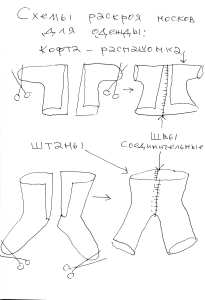 Схемы раскроя носков
для одежды:
Кофта - распашонка
Штаны
Швы
Соединительные